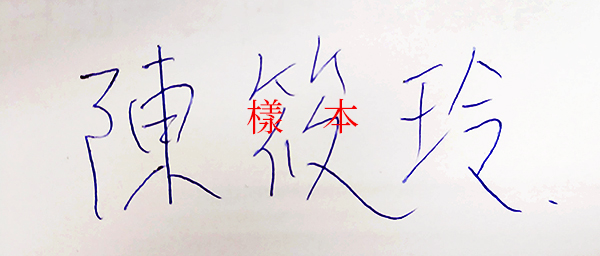 陳筱玲.
樣本